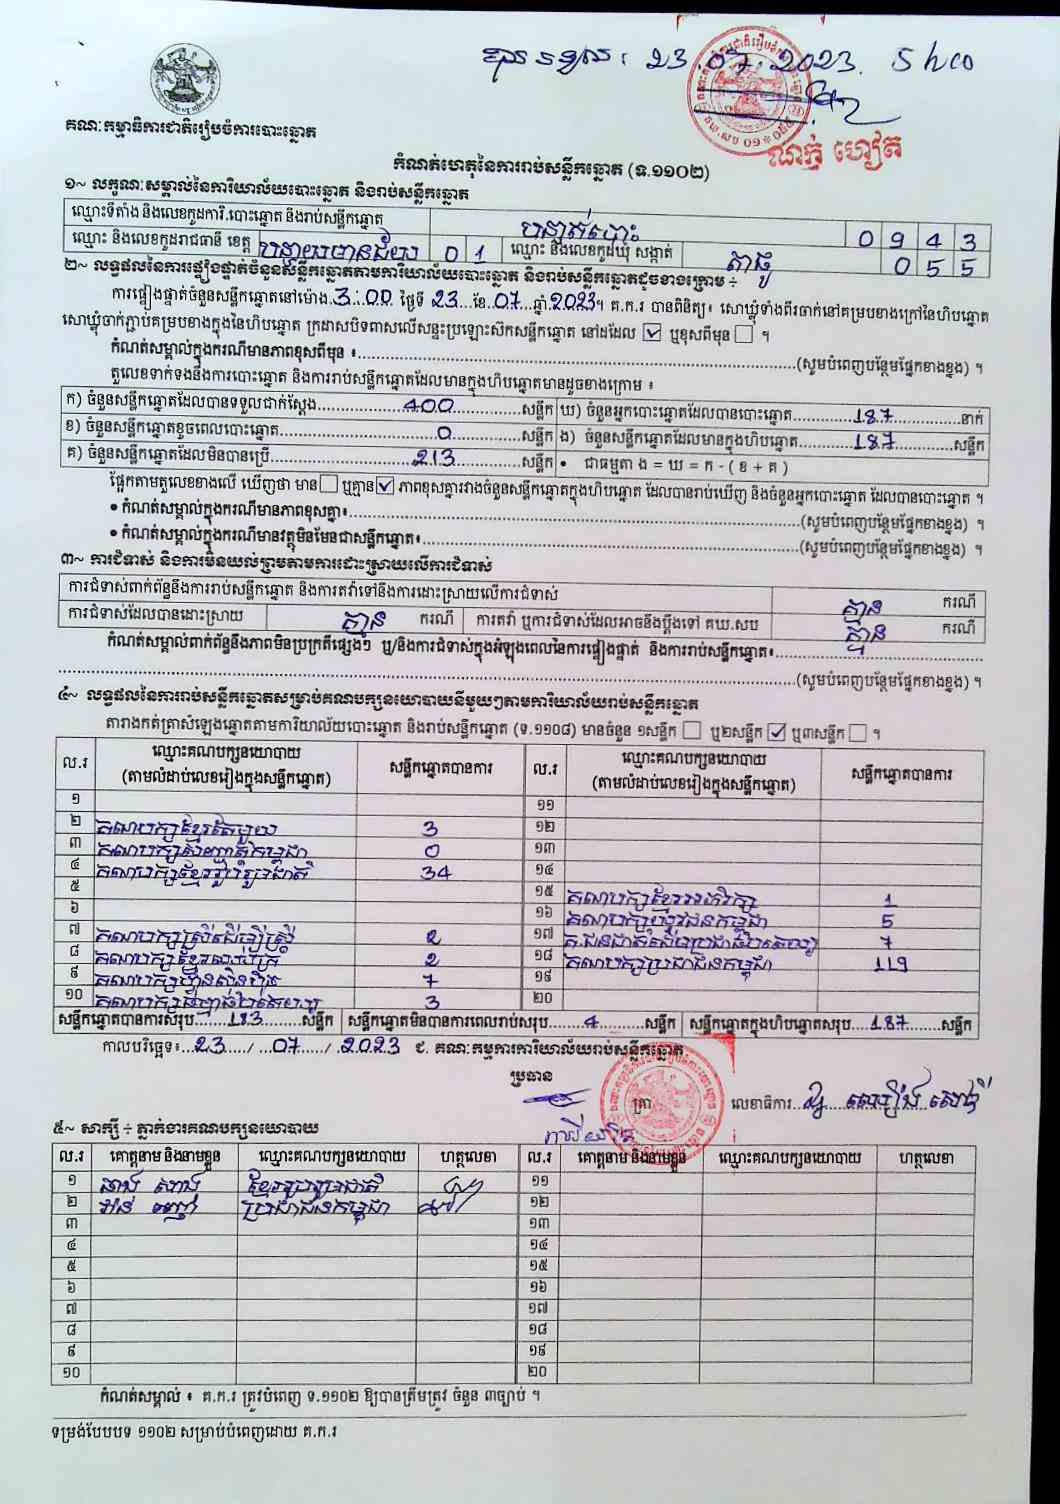 23.07.2023. 5h00
គណៈកម្មាធិការជាតិរៀបចំការបោះឆ្នោត
ណក់ ហៀត
កំណត់ហេតុនៃការរាប់សន្លឹកឆ្នោត (ទ.១១០២)
១~ លក្ខណៈសម្គាល់នៃការិយាល័យបោះឆ្នោត និងរាប់សន្លឹកឆ្នោត
ឈ្មោះទីតាំង និងលេខកូដការិ.បោះឆ្នោត និងរាប់សន្លឹកឆ្នោត 0 9 4 3
ឈ្មោះ និងលេខកូដរាជធានី ខេត្ត បន្ទាយមានជ័យ 0 1 ឈ្មោះ និងលេខកូដឃុំ សង្កាត់ 0 5 5
២~ លទ្ធផលនៃការផ្ទៀងផ្ទាត់ចំនួនសន្លឹកឆ្នោតតាមការិយាល័យបោះឆ្នោត និងរាប់សន្លឹកឆ្នោតដូចខាងក្រោម ÷
ការផ្ទៀងផ្ទាត់ចំនួនសន្លឹកឆ្នោតនៅម៉ោង.3:00 ថ្ងៃទី 23 ខែ.07 ឆ្នាំ.2023។ គ.ក.រ បានពិនិត្យ៖ សោឃ្លុំទាំងពីរចាក់នៅគម្របខាងក្រៅនៃហិបឆ្នោត
សោឃ្លុំចាក់ភ្ជាប់គម្របខាងក្នុងនៃហិបឆ្នោត ក្រដាសបិទពាសលើសន្ទះប្រឡោះស៊កសន្លឹកឆ្នោត នៅដដែល ☑ ឬខុសពីមុន ☐ ។
កំណត់សម្គាល់ក្នុងករណីមានភាពខុសពីមុន ៖........(សូមបំពេញបន្ថែមផ្នែកខាងខ្នង) ។
តួលេខទាក់ទងនឹងការបោះឆ្នោត និងការរាប់សន្លឹកឆ្នោតដែលមានក្នុងហិបឆ្នោតមានដូចខាងក្រោម ៖
ក) ចំនួនសន្លឹកឆ្នោតដែលបានទទួលជាក់ស្តែង........400........សន្លឹក ឃ) ចំនួនអ្នកបោះឆ្នោតដែលបានបោះឆ្នោត........187........នាក់
ខ) ចំនួនសន្លឹកឆ្នោតខូចពេលបោះឆ្នោត........0........សន្លឹក ង) ចំនួនសន្លឹកឆ្នោតដែលមានក្នុងហិបឆ្នោត........187........សន្លឹក
គ) ចំនួនសន្លឹកឆ្នោតដែលមិនបានប្រើ........213........សន្លឹក • ជាធម្មតា ង = ឃ = ក - ( ខ + គ )
ផ្អែកតាមតួលេខខាងលើ ឃើញថា មាន ☐ ឬគ្មាន ☑ ភាពខុសគ្នារវាងចំនួនសន្លឹកឆ្នោតក្នុងហិបឆ្នោត ដែលបានរាប់ឃើញ និងចំនួនអ្នកបោះឆ្នោត ដែលបានបោះឆ្នោត ។
• កំណត់សម្គាល់ក្នុងករណីមានភាពខុសគ្នា៖........(សូមបំពេញបន្ថែមផ្នែកខាងខ្នង) ។
• កំណត់សម្គាល់ក្នុងករណីមានវត្ថុមិនមែនជាសន្លឹកឆ្នោត៖........(សូមបំពេញបន្ថែមផ្នែកខាងខ្នង) ។
៣~ ការជំទាស់ និងការមិនយល់ព្រមតាមការដោះស្រាយលើការជំទាស់
ការជំទាស់ពាក់ព័ន្ធនឹងការរាប់សន្លឹកឆ្នោត និងការតវ៉ាទៅនឹងការដោះស្រាយលើការជំទាស់ គ្មាន ករណី
ការជំទាស់ដែលបានដោះស្រាយ គ្មាន ករណី ការតវ៉ា ឬការជំទាស់ដែលអាចនឹងប្តឹងទៅ គឃ.សប គ្មាន ករណី
កំណត់សម្គាល់ពាក់ព័ន្ធនឹងភាពមិនប្រក្រតីផ្សេងៗ ឬ/និងការជំទាស់ក្នុងអំឡុងពេលនៃការផ្ទៀងផ្ទាត់ និងការរាប់សន្លឹកឆ្នោត៖........
........(សូមបំពេញបន្ថែមផ្នែកខាងខ្នង) ។
៤~ លទ្ធផលនៃការរាប់សន្លឹកឆ្នោតសម្រាប់គណបក្សនយោបាយនីមួយៗតាមការិយាល័យរាប់សន្លឹកឆ្នោត
តារាងកត់ត្រាសំឡេងឆ្នោតតាមការិយាល័យបោះឆ្នោត និងរាប់សន្លឹកឆ្នោត (ទ.១១០៨) មានចំនួន ១សន្លឹក ☐ ឬ២សន្លឹក ☑ ឬ៣សន្លឹក ☐ ។
ល.រ ឈ្មោះគណបក្សនយោបាយ (តាមលំដាប់លេខរៀងក្នុងសន្លឹកឆ្នោត) សន្លឹកឆ្នោតបានការ ល.រ ឈ្មោះគណបក្សនយោបាយ (តាមលំដាប់លេខរៀងក្នុងសន្លឹកឆ្នោត) សន្លឹកឆ្នោតបានការ
១ ១១
២ គណបក្សខ្មែរតែមួយ 3 ១២
៣ គណបក្សសញ្ជាតិកម្ពុជា 0 ១៣
៤ គណបក្សខ្មែររួបរួមជាតិ 34 ១៤
៥ ១៥ គណបក្សខ្មែរអភិរក្ស 1
៦ ១៦ គណបក្សយុវជនកម្ពុជា 5
៧ គណបក្សស្ត្រីដើម្បីស្ត្រី 2 ១៧ 7
៨ 2 ១៨ គណបក្សប្រជាជនកម្ពុជា 119
៩ គណបក្សហ៊្វុនស៊ិនប៉ិច 7 ១៩
១០ 3 ២០
សន្លឹកឆ្នោតបានការសរុប........183........សន្លឹក សន្លឹកឆ្នោតមិនបានការពេលរាប់សរុប........4........សន្លឹក សន្លឹកឆ្នោតក្នុងហិបឆ្នោតសរុប....187........សន្លឹក
កាលបរិច្ឆេទ៖...23...../...07...../.2023 ជ. គណៈកម្មការការិយាល័យរាប់សន្លឹកឆ្នោត
ប្រធាន
ត្រា លេខាធិការ
៥~ សាក្សី ÷ ភ្នាក់ងារគណបក្សនយោបាយ
ល.រ គោត្តនាម និងនាមខ្លួន ឈ្មោះគណបក្សនយោបាយ ហត្ថលេខា ល.រ គោត្តនាម និងនាមខ្លួន ឈ្មោះគណបក្សនយោបាយ ហត្ថលេខា
១ ខ្មែររួបរួមជាតិ ១១
២ ប្រជាជនកម្ពុជា ១២
៣ ១៣
៤ ១៤
៥ ១៥
៦ ១៦
៧ ១៧
៨ ១៨
៩ ១៩
១០ ២០
កំណត់សម្គាល់ ៖ គ.ក.រ ត្រូវបំពេញ ទ.១១០២ ឱ្យបានត្រឹមត្រូវ ចំនួន ៣ច្បាប់ ។
ទម្រង់បែបបទ ១១០២ សម្រាប់បំពេញដោយ គ.ក.រ